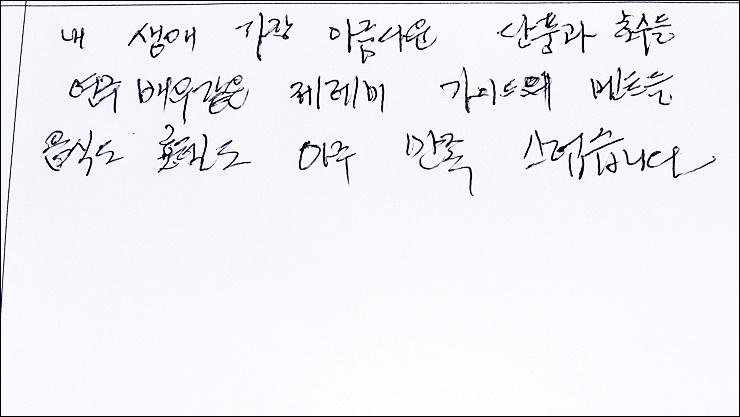 내 생애 가장 아름다운 단풍과 호수들
연주 배우같은 제레미 가이드의 멘트들
음식도 호텔도 아주 만족 스럽습니다